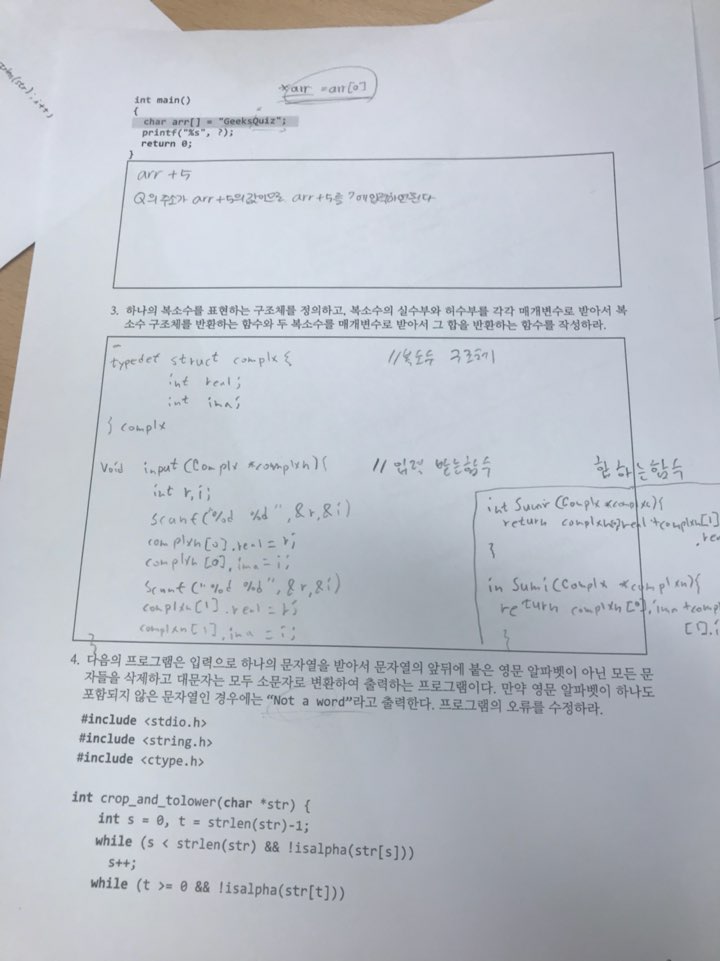 *arr = arr[0]
int main()
{
char arr[] = "GeeksQuiz";
printf("%s", ?);
return 0;
}
arr +5
Q의 주소가 arr+5의 값이므로 arr+5를 ?에 입력하면된다
3. 하나의 복소수를 표현하는 구조체를 정의하고, 복소수의 실수부와 허수부를 각각 매개변수로 받아서 복
소수 구조체를 반환하는 함수와 두 복소수를 매개변수로 받아서 그 합을 반환하는 함수를 작성하라.
typedef struct complx { //복소수 구조체
int real;
int ima;
} complx
Void input (Complx *complxn){ // 입력 받는함수
int r,i;
Scanf("%d %d",&r,&i)
complxn[0].real = r;
complxn[0].ima = i;
Scanf("%d %d",&r,&i)
complxn[1].real = r;
complxn[1].ima = i;
}
합 하는 함수
int Sumr (Complx *complxn){
return complxn[0].real +complxn[1]
.rea
}
in Sumi (Complx *complxn){
return complxn[0].ima +compl
[1].i
}
4. 다음의 프로그램은 입력으로 하나의 문자열을 받아서 문자열의 앞뒤에 붙은 영문 알파벳이 아닌 모든 문
자들을 삭제하고 대문자는 모두 소문자로 변환하여 출력하는 프로그램이다. 만약 영문 알파벳이 하나도
포함되지 않은 문자열인 경우에는 "Not a word"라고 출력한다. 프로그램의 오류를 수정하라.
#include <stdio.h>
#include <string.h>
#include <ctype.h>
int crop_and_tolower(char *str) {
int s = 0, t = strlen(str)-1;
while (s < strlen(str) && !isalpha(str[s]))
s++;
while (t >= 0 && !isalpha(str[t]))